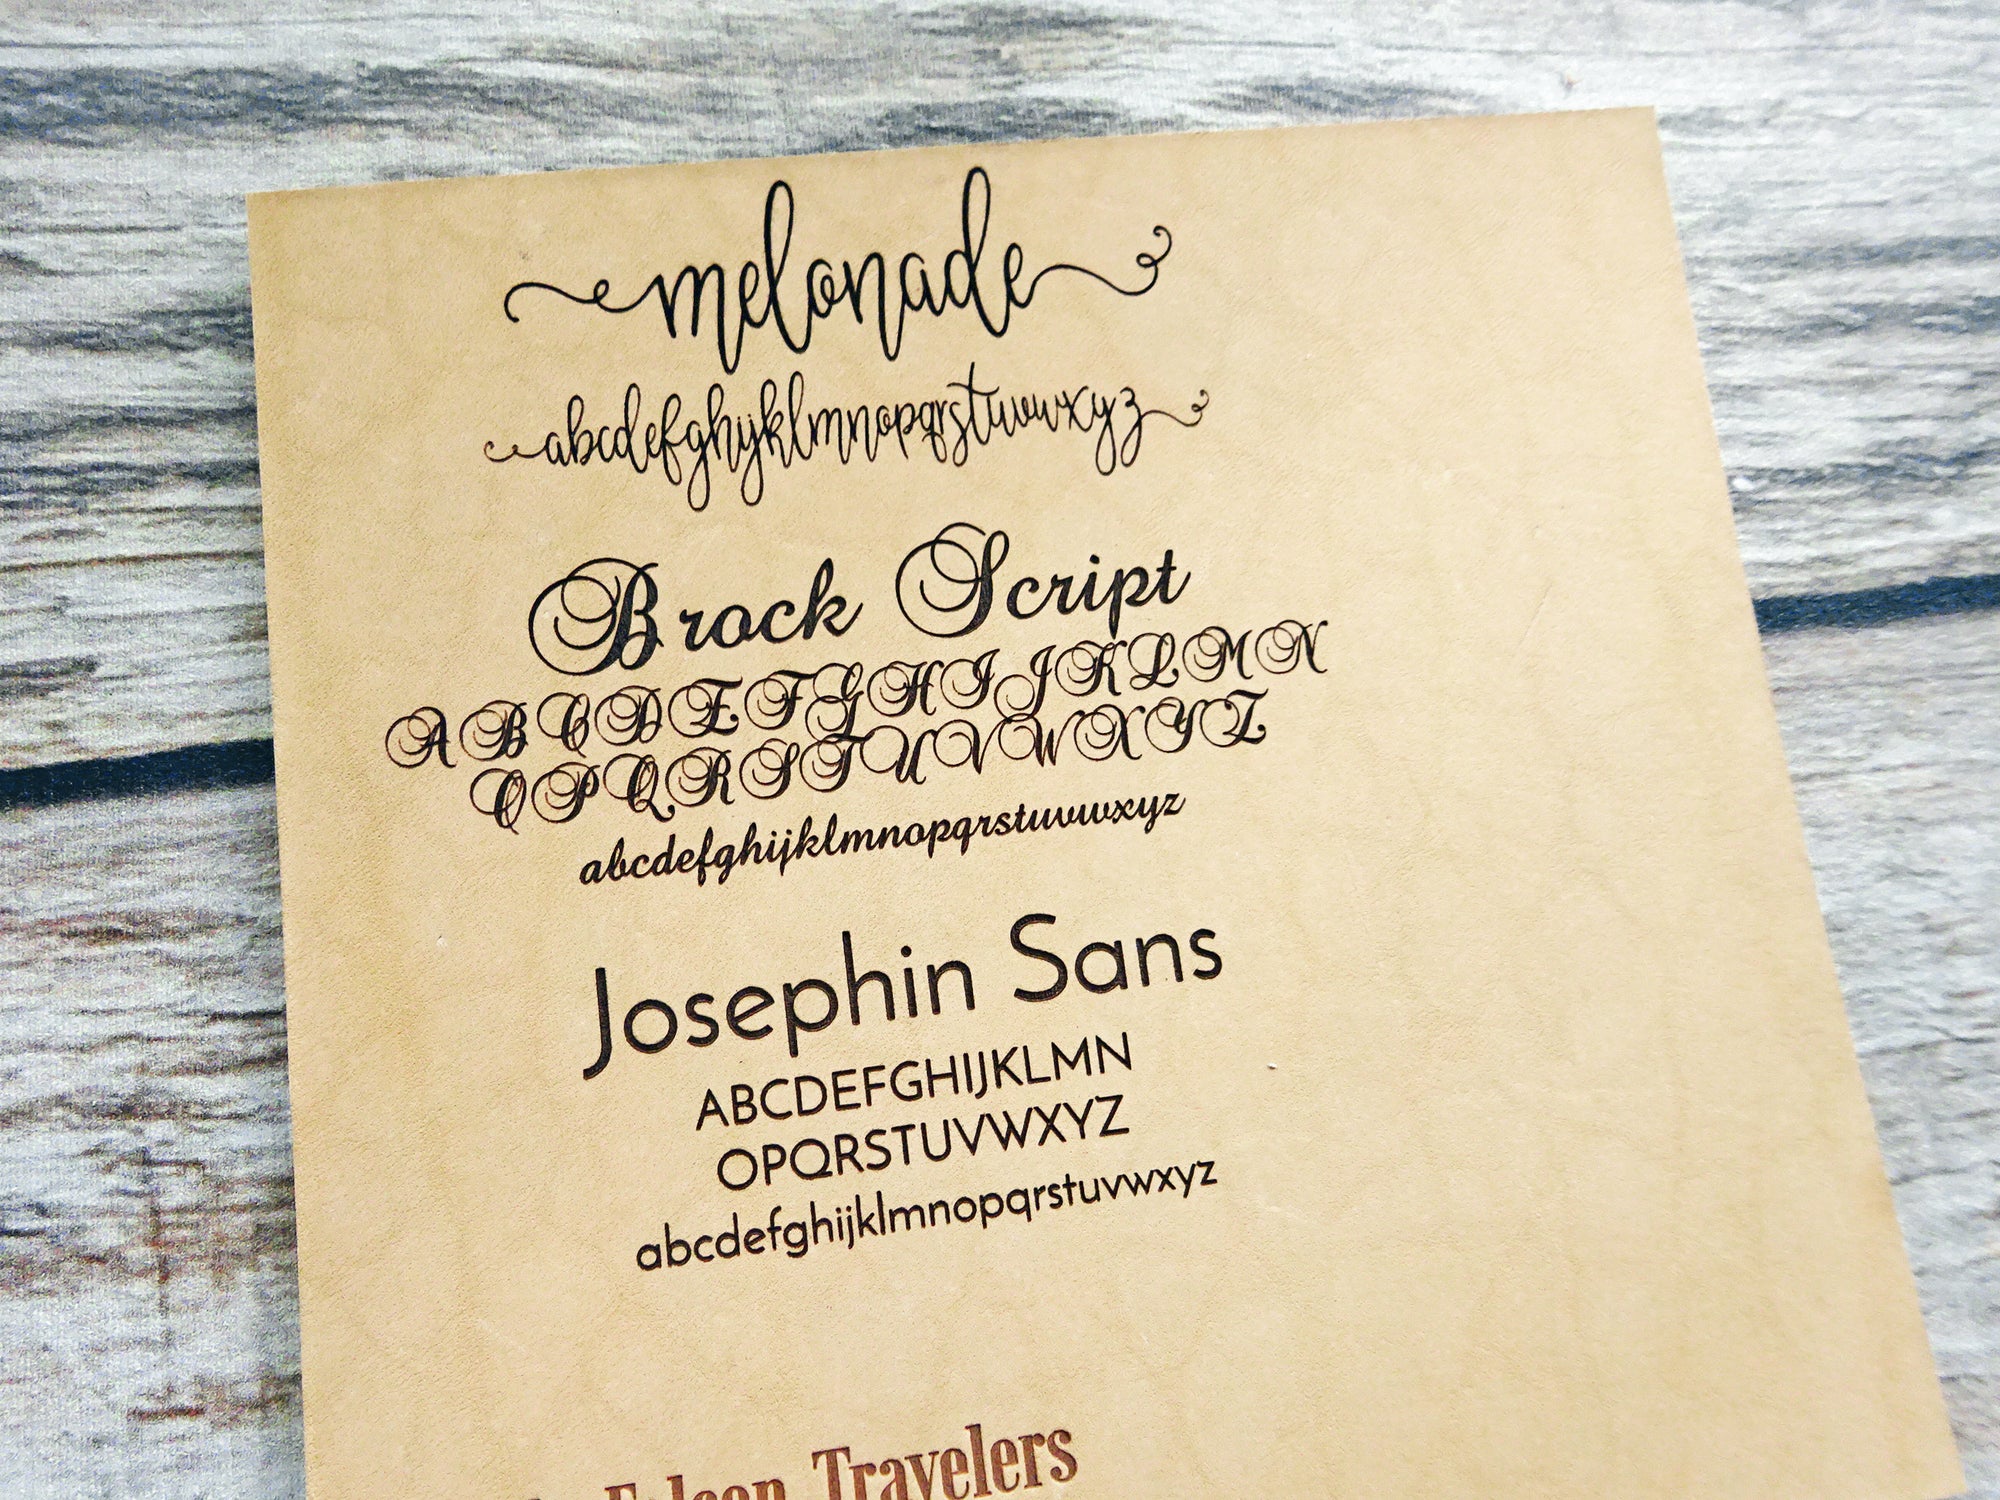 melonade
abcdefghijklmnopqrstuvwxyz
Brock Script
ABCDEFGHIJKLMN
OPQRSTUVWXYZ
abcdefghijklmnopqrstuvwxyz
Josephin Sans
ABCDEFGHIJKLMN
OPQRSTUVWXYZ
abcdefghijklmnopqrstuvwxyz
Falcon Travelers